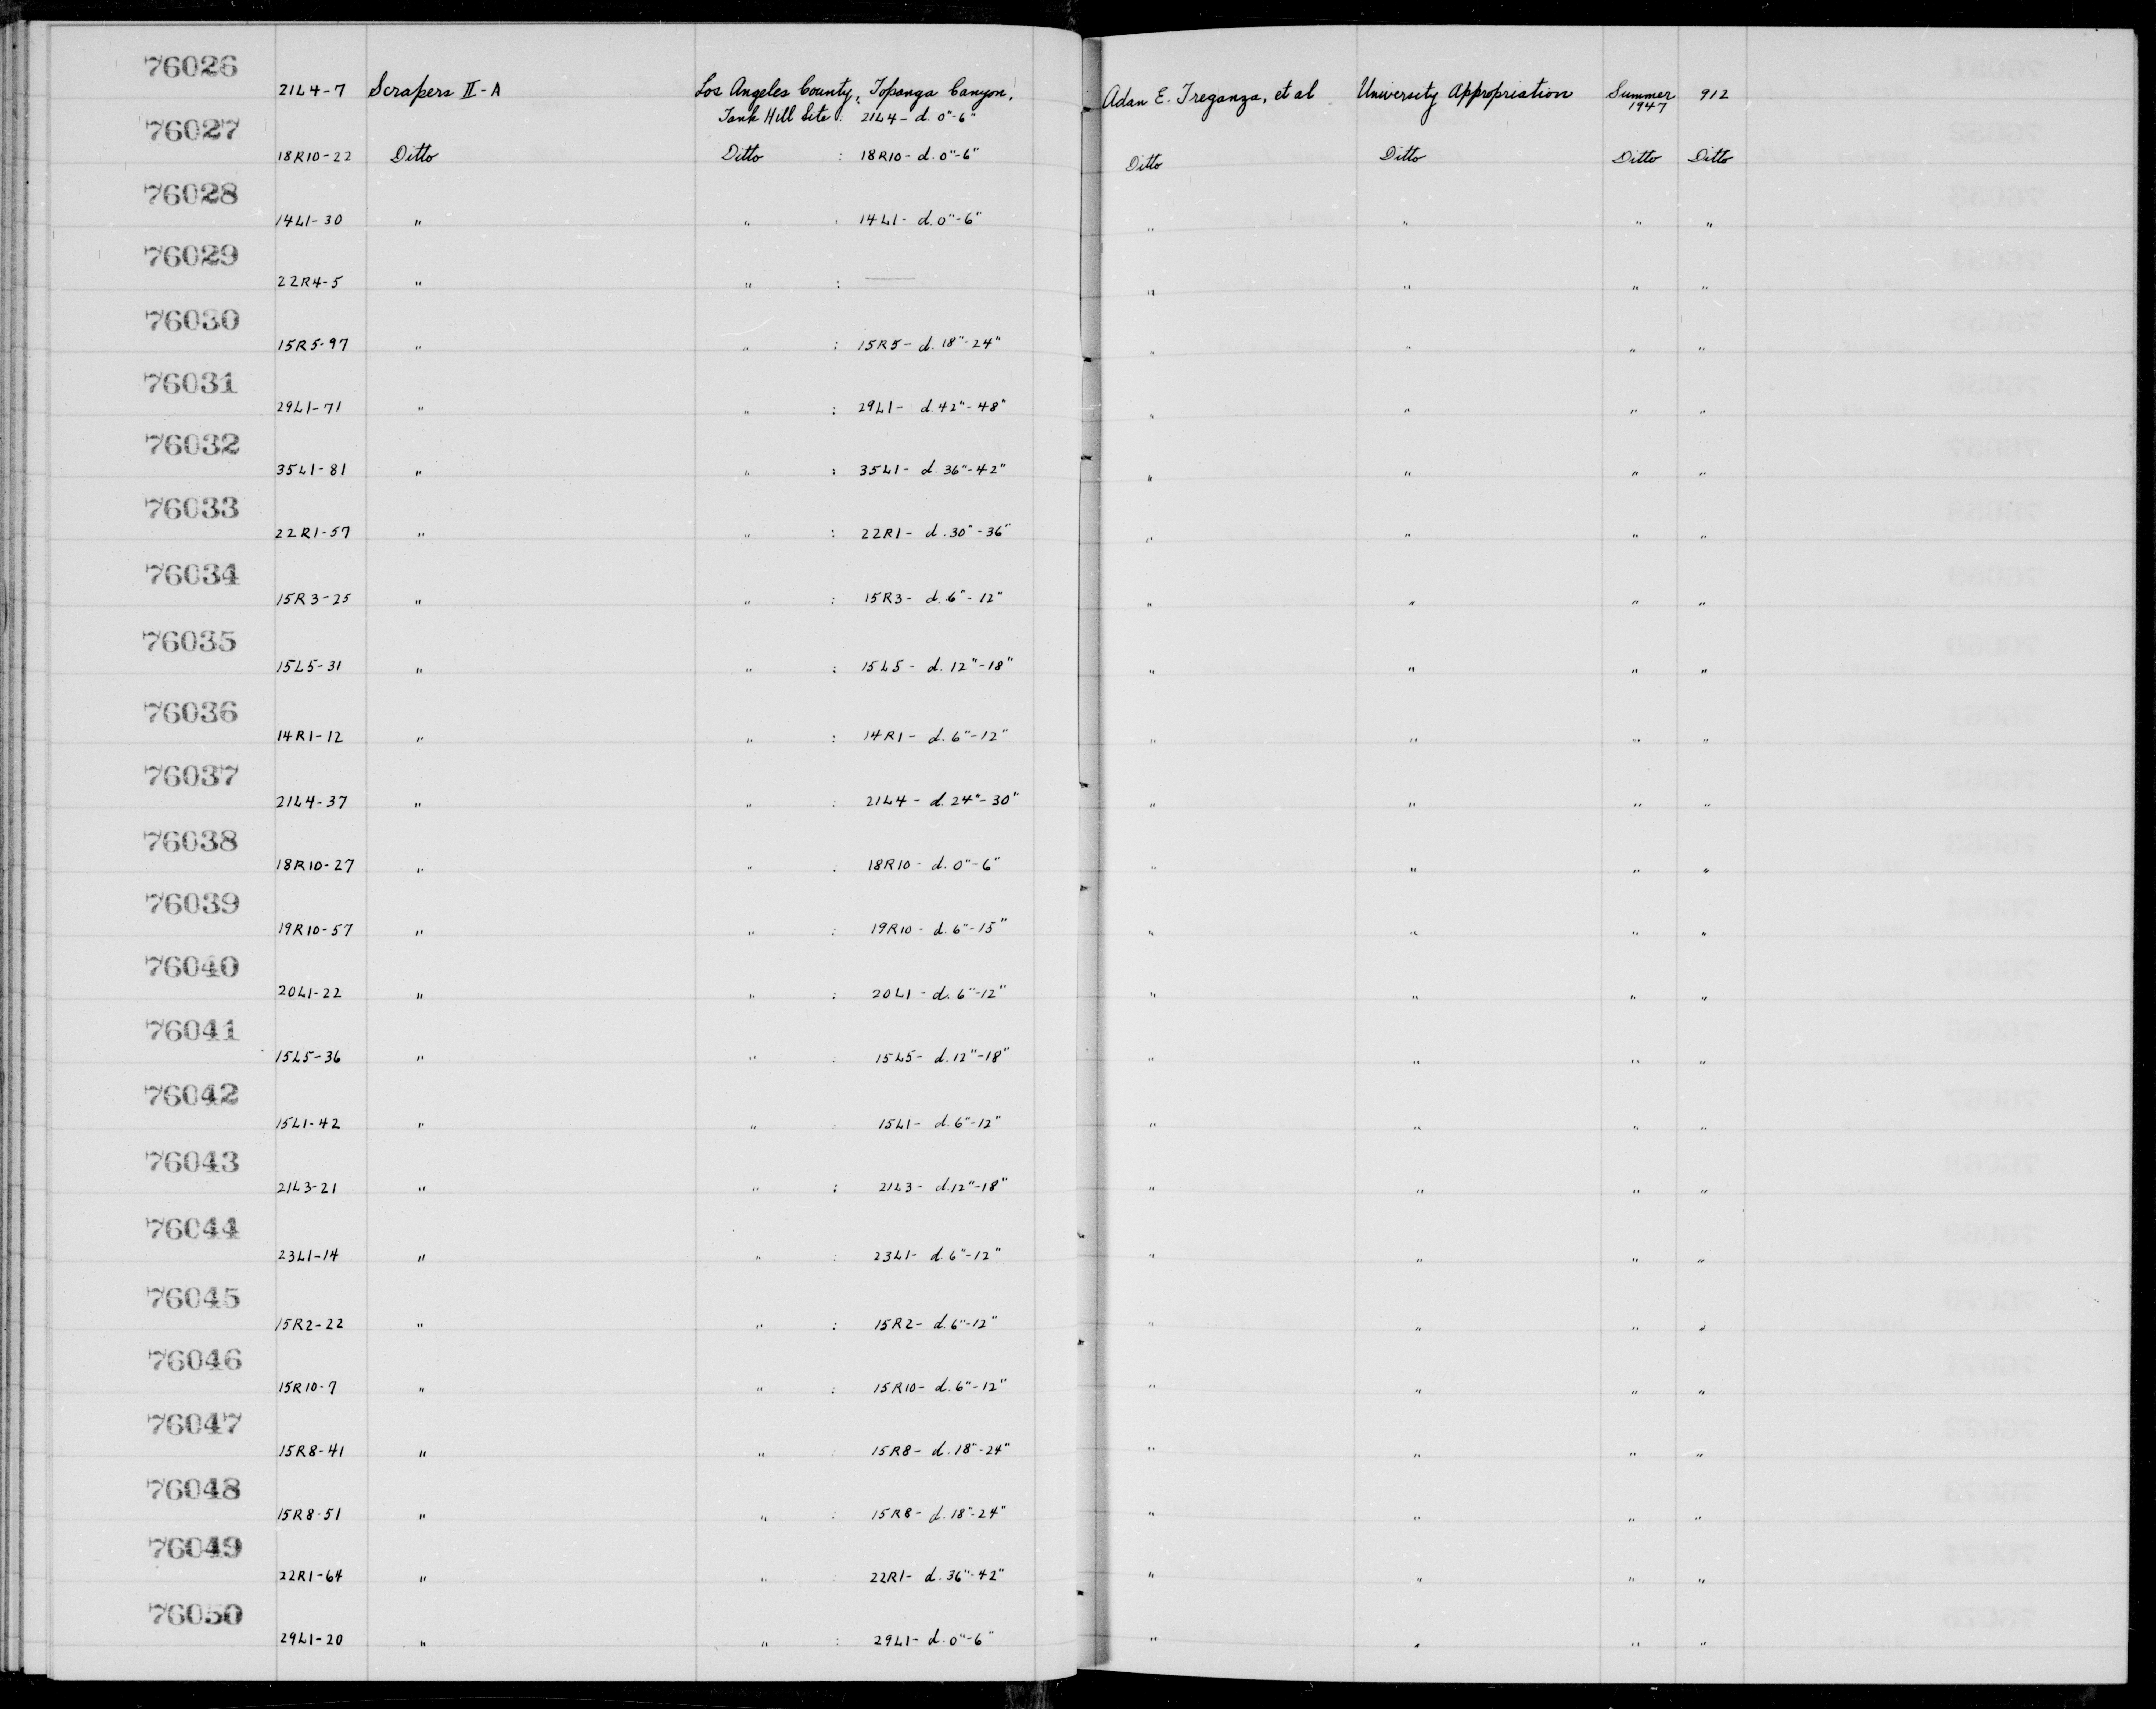 76026
21L4-7 Scrapers II-A Los Angeles County, Topanga Canyon, Adan E. Treganza, et al University Appropriation Summer 1947 912
Tank Hill Site : 21L4- d. 0"-6"
76027
18R10-22 Ditto Ditto : 18R10- d. 0"-6" Ditto Ditto Ditto Ditto
76028
14L1-30 " " : 14L1- d. 0"-6" " " " "
76029
22R4-5 " " : —— " " " "
76030
15R5-97 " " : 15R5- d. 18"-24" " " " "
76031
29L1-71 " " : 29L1- d. 42"-48" " " " "
76032
35L1-81 " " : 35L1- d. 36"-42" " " " "
76033
22R1-57 " " : 22R1- d. 30"-36" " " " "
76034
15R3-25 " " : 15R3- d. 6"-12" " " " "
76035
15L5-31 " " : 15L5- d. 12"-18" " " " "
76036
14R1-12 " " : 14R1- d. 6"-12" " " " "
76037
21L4-37 " " : 21L4- d. 24"-30" " " " "
76038
18R10-27 " " : 18R10- d. 0"-6" " " " "
76039
19R10-57 " " : 19R10- d. 6"-15" " " " "
76040
20L1-22 " " : 20L1- d. 6"-12" " " " "
76041
15L5-36 " " : 15L5- d. 12"-18" " " " "
76042
15L1-42 " " : 15L1- d. 6"-12" " " " "
76043
21L3-21 " " : 21L3- d. 12"-18" " " " "
76044
23L1-14 " " : 23L1- d. 6"-12" " " " "
76045
15R2-22 " " : 15R2- d. 6"-12" " " " "
76046
15R10-7 " " : 15R10- d. 6"-12" " " " "
76047
15R8-41 " " : 15R8- d. 18"-24" " " " "
76048
15R8-51 " " : 15R8- d. 18"-24" " " " "
76049
22R1-64 " " : 22R1- d. 36"-42" " " " "
76050
29L1-20 " " : 29L1- d. 0"-6" " " " "